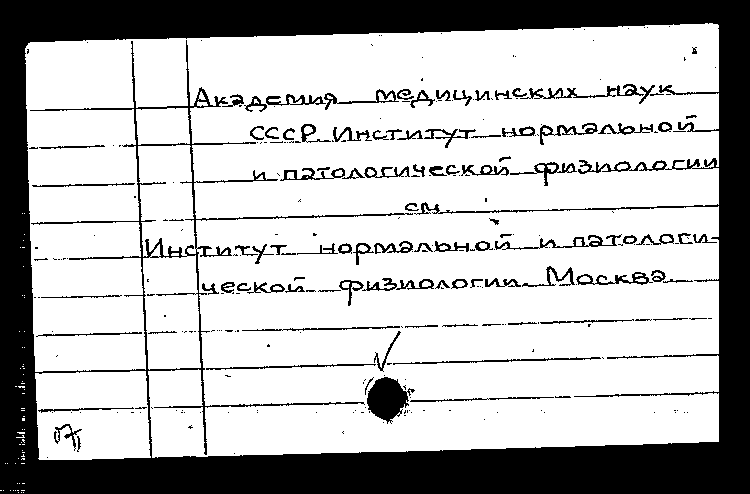 Академия медицинских наук
СССР. Институт нормальной
и патологической физиологии
см.
Институт нормальной и патологи-
ческой физиологии. Москва.